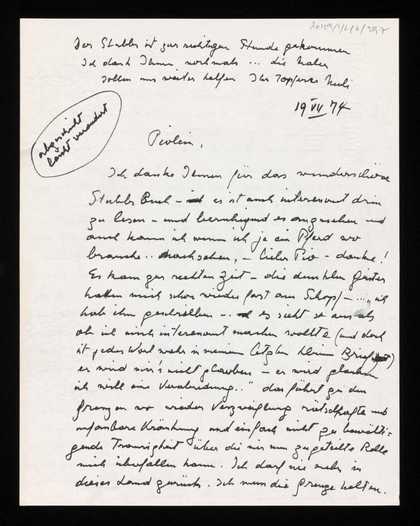 Der Stubbs ist zur richtigen Stunde gekommen
Ich dank Ihnen, nochmals ... die
sollen uns weiter helfen Ihr tapferer
19 VII 74
abgeschickt
leicht verändert
Piolin,
Ich danke Ihnen für das wunderschöne
Stubbs Buch – es ist auch interessant drin
zu lesen – und beruhigend es anzusehen und
auch kann ich wenn ich je ein Pferd wo
brauche .. nachsehen, – lieber Pio – danke!
Es kam zur rechten Zeit – die dunklen Geister
hatten mich schon wieder fast am Schopf – ... „ich
hab ihm gestohlen – .. es sieht so aus als
ob ich mich interessant machen wollte (und doch
ist jedes Wort wahr in meinem letzten kleinen Brief)
er wird mir's nicht glauben – er wird glauben
ich will eine Verabredung.." das führt zu den
Grenzen wo wieder Verzweiflung und
unfassbare Kränkung und einfach nicht zu bewälti-
gende Traurigkeit über die mir nun zugeteilte Rolle
mich überfallen kann. Ich darf nie mehr in
dieses Land zurück. Ich muss die Grenze halten.